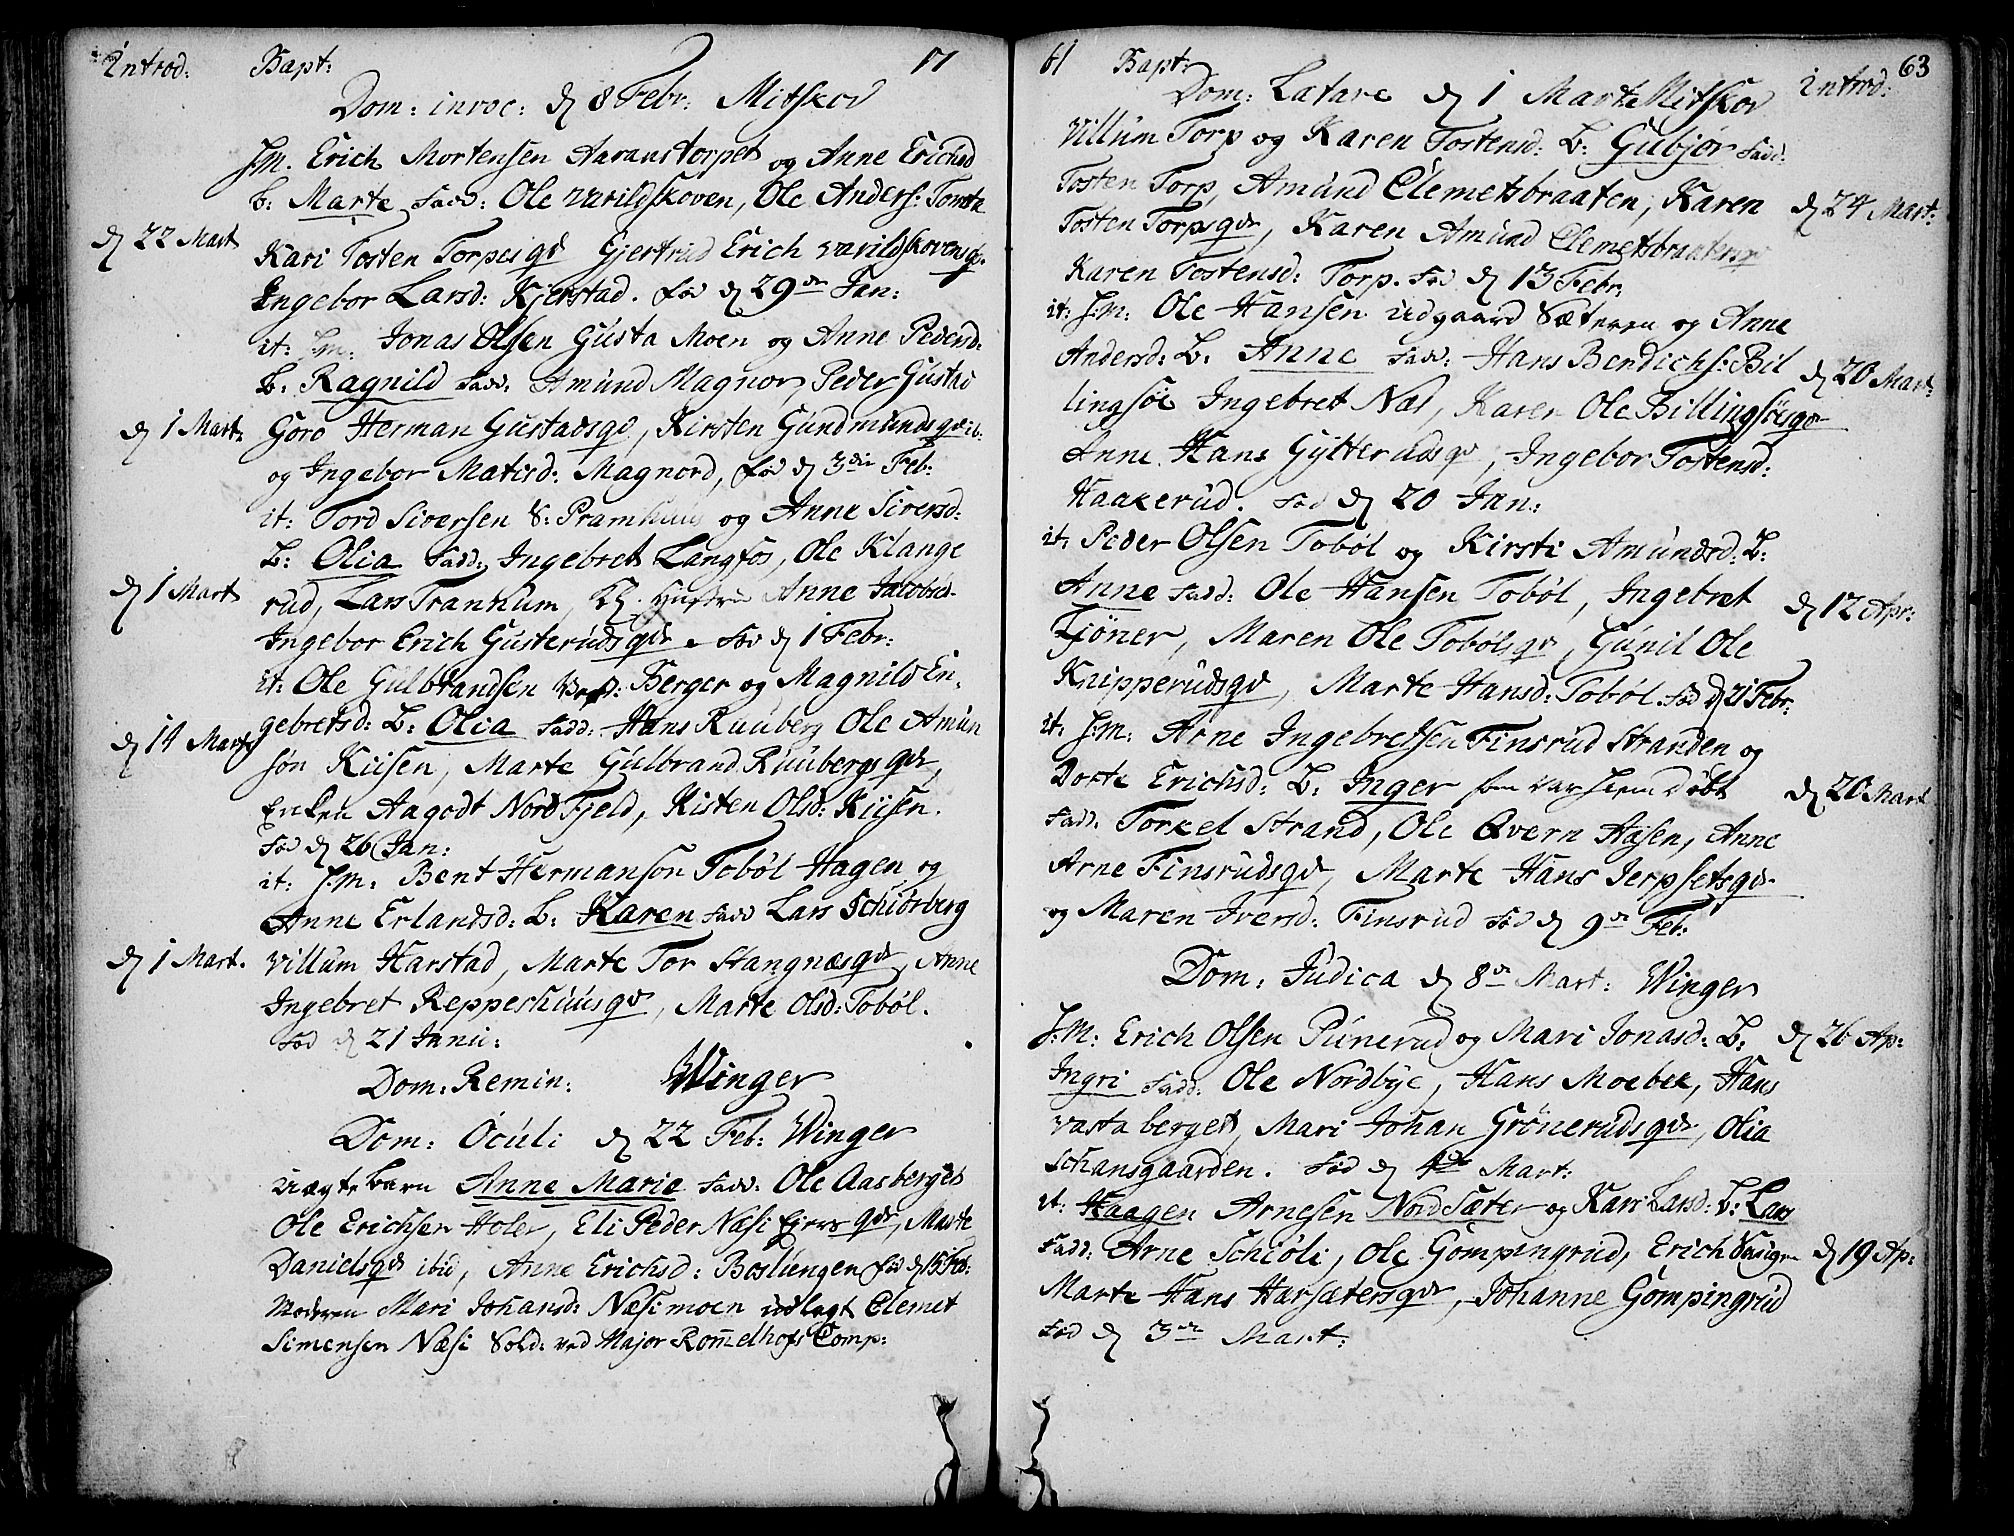 Introd: Bapt: 17
Dom: invoc: d 8 Febr: Mitskov
J:M: Erich Mortensen Aaranstorpet og Anne Erichsd
b: Marte Fadd: Ole varildskoven, Ole Anders: Tomte
d 22 Mart
Kari Tosten Torpesqv Gjertrud Erich varildskovensqv.
Ingebor Larsd: Kjerstad. fød d 29de Jan:
it: J:M: Jonas Olsen Gusta Moen og Anne Pedersd:
b: Ragnild Fadd. Amund Magnor, Peder Gustad
d 1 Mart: Goro Herman Gustadsqv, Kirsten Gundmundsqv ib:
og Ingebor Matisd: Magnord, fød d 3die Feb:
it: Tord Siversen S: Pramhuus og Anne Siversd:
b: Olia Fadd: Ingebret Langfos, Ole Klange
d 1 Mart
rud, Lars Tranhum, Hustru Anne Jacobsd.
Ingebor Erich Gusterudsqv. Fød d 1 Febr:
it: Ole Gulbrandsen Berger og Magnild En,
gebretsd: b: Olia Fadd: Hans Ruuberg Ole Amun
d 14 Marts
søn Kiisen, Marte Gulbrand Ruubergsqv,
Enken Aagodt Nord Fjeld, Kisten Olsd: Kiisen.
Fød d 26 Jan:
it: J:M: Bent Hermanson Tobøl Hagen og
Anne Erlandsd: b: Karen Fadd Lars Schiøsberg
d 1 Mart. villum Harstad, Marte Tor Stangnæsqv, Anne
Ingebret Reppeshuusqv, Marte Olsd: Tobøl.
Fød d 21 Janu:
Dom: Remin: Winger
Dom: Oculi d 22 Feb: Winger
uægte barn Anne Marie Fadd. Ole Aasberget
Ole Erichsen Holer, Eli Peder Næsi Ejersqv, Marte
Danielsqv ibid, Anne Erichsd: Boslungen fød d 15 Feb:
Moderen Mari Johansd: Næsimoen udlagt Clemet
Simensen Næsi Sold: ved Major Rommelhofs Comp:
61 Bapt: Introd: 63
Dom: Latare d 1 Marts Mitskov
Villum Torp og Karen Tostensd: b: Gubjør Fadd:
Tosten Torp, Amund Clemetsbraaten, Karen d 24 Mart:
Tosten Torpsqv, Karen Amund Clemetsbraatensqv
Karen Tostensd: Torp. Fød d 13 Febr:
it: J:M: Ole Hansen udgaard Sæteren og Anne
Andersd: b: Anne Fadd: Hans Bendichs: Bil d 20 Mart:
lingsöe Ingebret Næs, Karen Ole Billingsöesqv
Anne Hans Gytterudsqv, Ingebor Tostensd:
Haakerud. Fød d 20 Jan:
it: Peder Olsen Tobøl og Kirsti Amundsd: b:
Anne Fadd: Ole Hansen Tobøl, Ingebret d 12 Apr:
Tjöner, Maren Ole Tobølsqv, Gunil Ole
Knipperudsqv, Marte Hansd: Tobøl Fød d 21 Febr:
it: J:M: Arne Ingebretsen Finsrud Stranden og
Dorte Erichsd: b: Inger som var hiem døbt d 20 Mart
Fadd. Torkel Strand, Ole Qvern Aasen, Anne
Arne Finsrudsqv, Marte Hans Jerpsetsqv
og Maren Iversd: Finsrud Fød d 9de Feb:
Dom: Judica d 8de Mart: Winger
J:M: Erich Olsen Punerud og Mari Jonasd: b: d 26 Ap:
Ingri Fadd: Ole Nordbye, Hans Moebek, Hans
vasta berget, Mari Johan Grönerudsqv, Olia
Schansgaarden. Fød d 4de Mart:
it: Haagen Arnesen Nord Sæter og Kari Larsd: b: Lars
Fadd: Arne Schiöli, Ole Gompingrud, Erich d 19 Ap:
Marte Hans Harsætersqv, Johanne Gompingrud
Fød d 3de Mart: